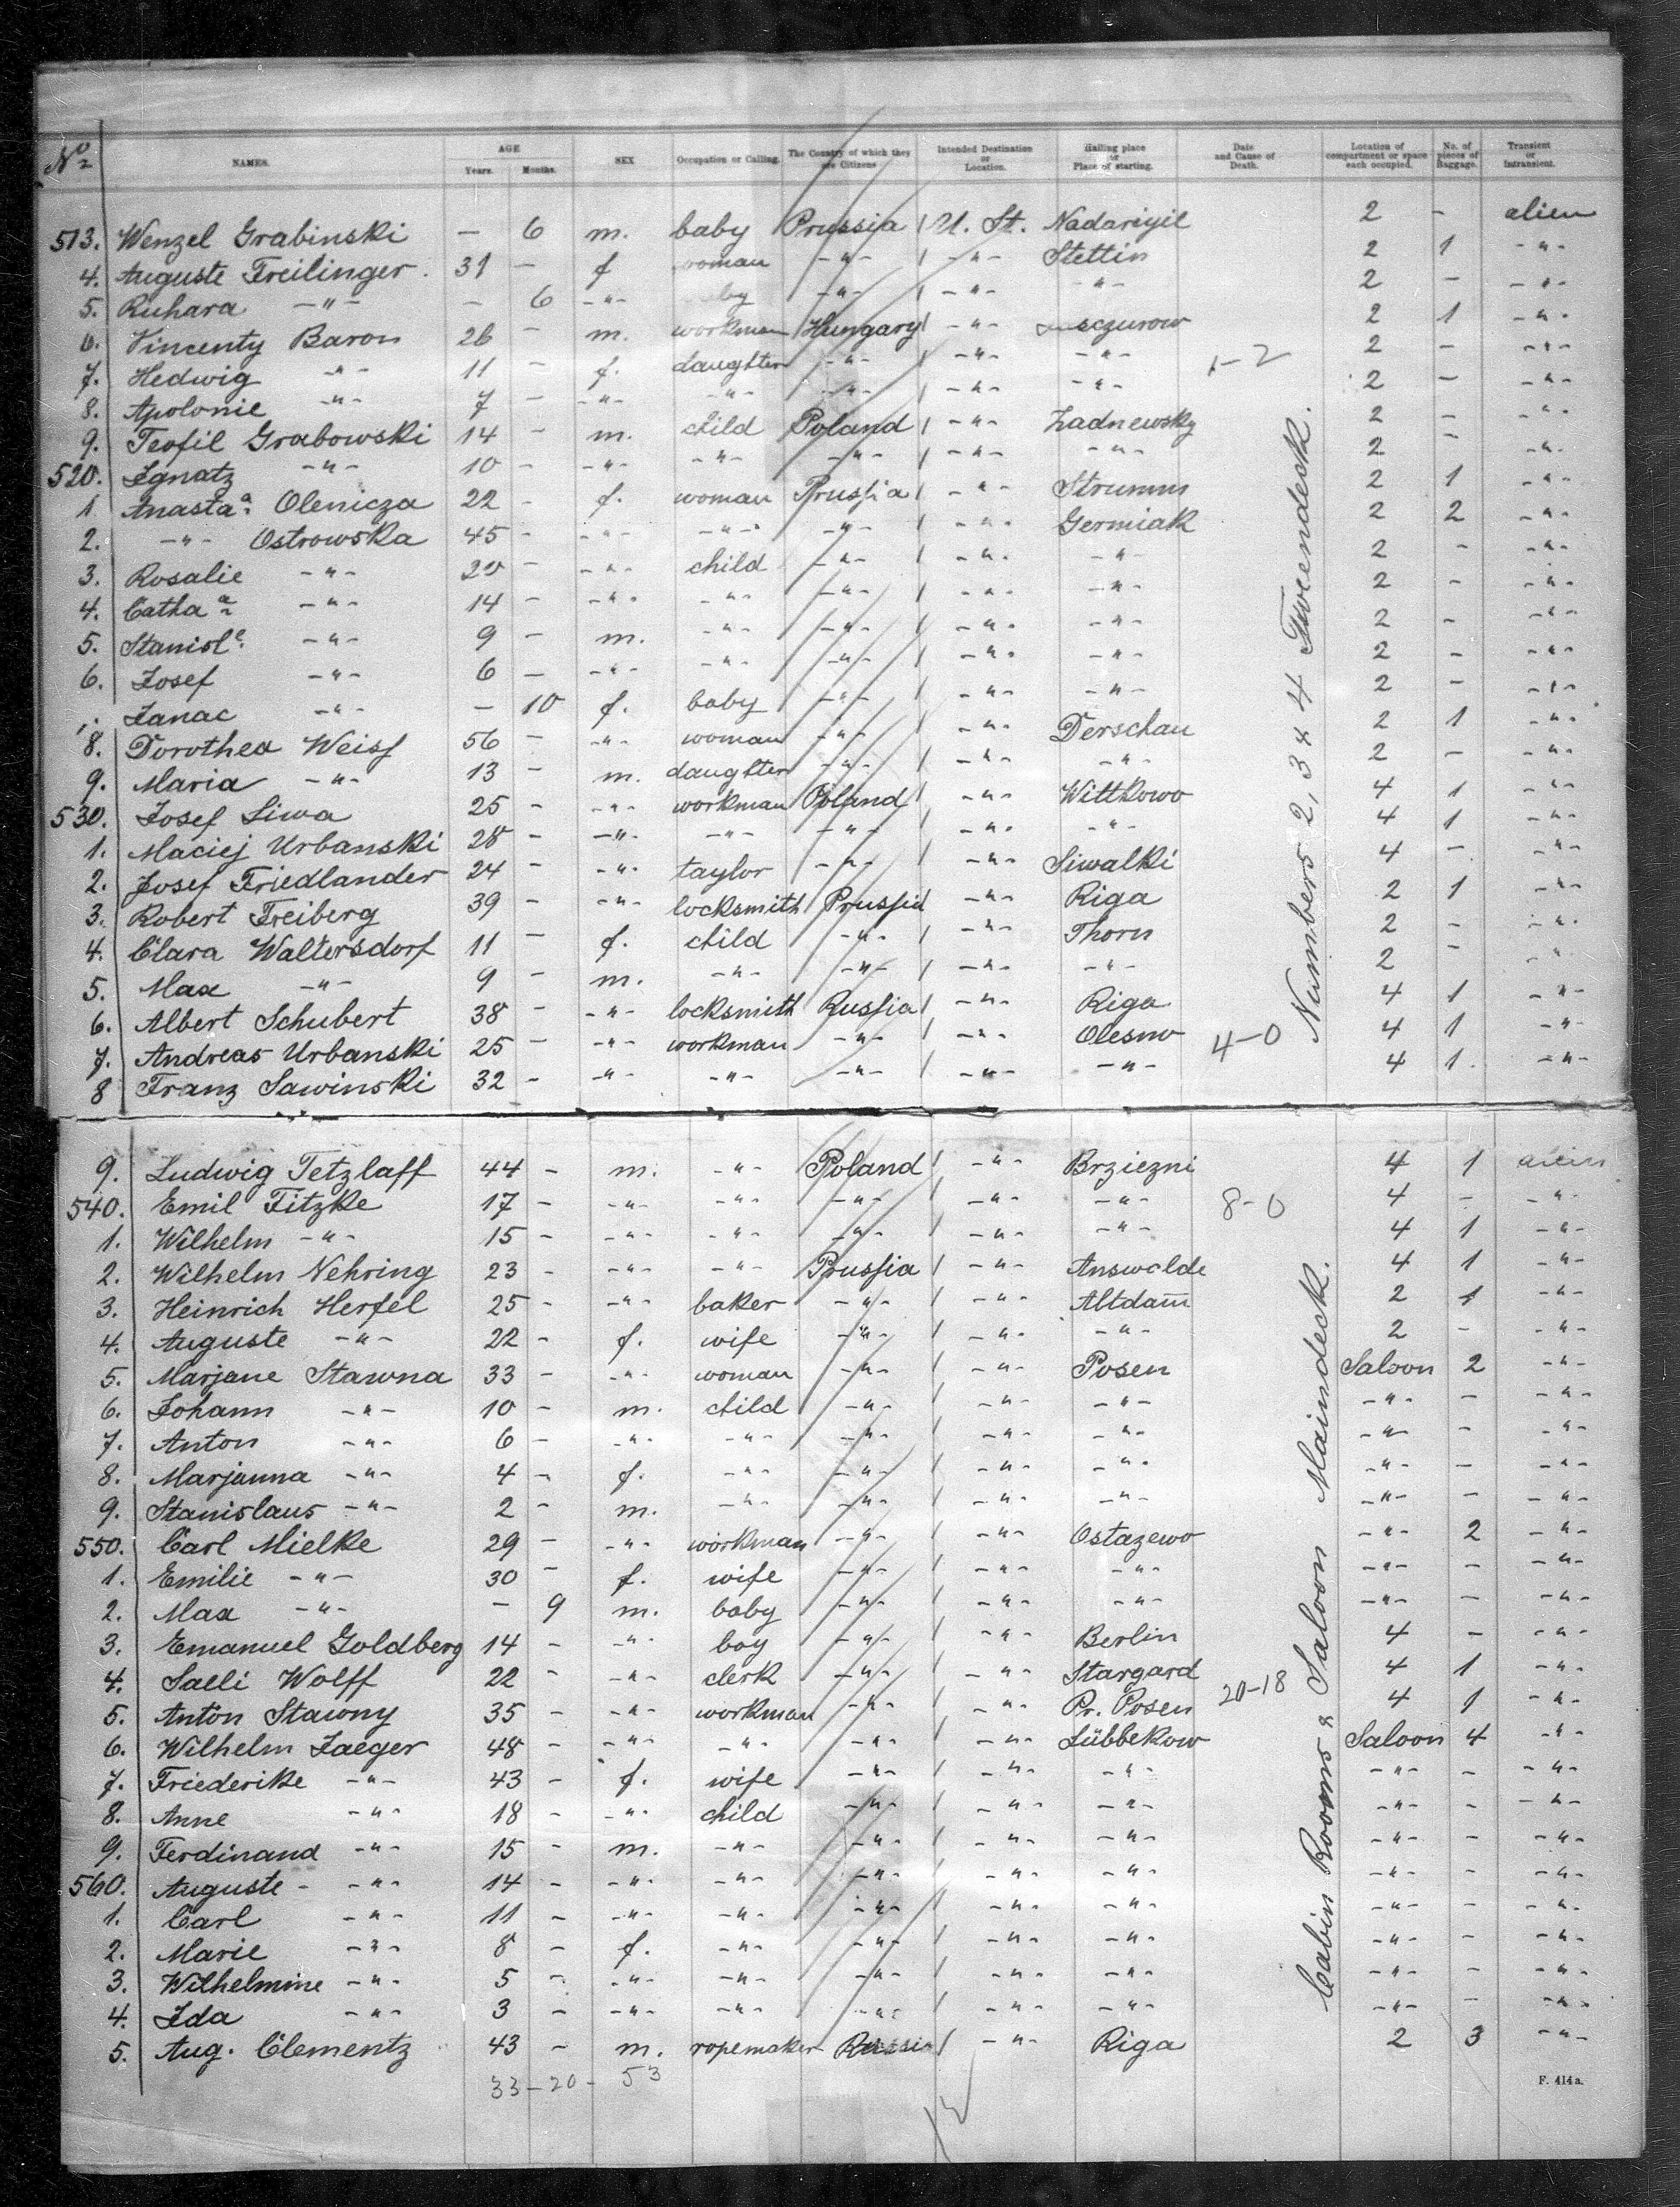 No NAMES. AGE Years. Months. SEX Occupation or Calling. The Country of which they are Citizens Intended Destination or Location. Hailing place or Place of starting. Date and Cause of Death. Location of compartment or space each occupied. No. of pieces of Baggage. Transient or Intransient.
513. Wenzel Grabinski — 6 m. baby Prussia U. St. Nadariyil 2 - alien
4. Auguste Freilinger. 31 — f woman -"- -"- Stettin 2 1 -"-
5. Ruhara -"- — 6 -"- -"- -"- -"- 2 - -"-
6. Vincenty Baron 26 - m. workman Hungary -"- 2 1 -"-
7. Hedwig -"- 11 - f. daughter -"- -"- -"- 1-2 2 - -"-
8. Apolonie -"- 7 - -"- -"- -"- -"- -"- 2 - -"-
9. Teofil Grabowski 14 - m. child Poland -"- Zadnewsky 2 - -"-
520. Ignatz -"- 10 - -"- -"- -"- -"- -"- 2 - -"-
1 Anasta.a Olenicza 22 - f. woman Prussia -"- Strumm 2 1 -"-
2. -"- Ostrowska 45 - -"- -"- -"- -"- Germiak 2 2 -"-
3. Rosalie -"- 20 - -"- child -"- -"- -"- 2 - -"-
4. Catha.a -"- 14 - -"- -"- -"- -"- -"- 2 - -"-
5. Stanisl.e -"- 9 - m. -"- -"- -"- -"- 2 - -"-
6. Josef -"- 6 - -"- -"- -"- -"- -"- 2 - -"-
Janac -"- — 10 f. baby -"- -"- -"- 2 - -"-
8. Dorothea Weiss 56 - -"- woman -"- -"- Derschau 2 1 -"-
9. Maria -"- 13 - m. daughter -"- -"- -"- 2 - -"-
530. Josef Siwa 25 - -"- workman Poland -"- Wittkowo 4 1 -"-
1. Maciej Urbanski 28 - -"- -"- -"- -"- -"- 4 1 -"-
2. Josef Friedlander 24 - -"- taylor -"- -"- Siwalki 4 - -"-
3. Robert Freiberg 39 - -"- locksmith Prussia -"- Riga 2 1 -"-
4. Clara Waltersdorf 11 - f. child -"- -"- Thorn 2 - -"-
5. Max -"- 9 m. -"- -"- -"- -"- 2 - -"-
6. Albert Schubert 38 - -"- locksmith Russia -"- Riga 4 1 -"-
7. Andreas Urbanski 25 - -"- workman -"- -"- Olesno 4-0 4 1 -"-
8 Franz Sawinski 32 - -"- -"- -"- -"- -"- 4 1. -"-
Numbers 2, 3 & 4 Tweendeck.
9. Ludwig Tetzlaff 44 - m. -"- Poland -"- Brziezni 4 1 alien
540. Emil Fitzke 17 - -"- -"- -"- -"- -"- 8-0 4 - -"-
1. Wilhelm -"- 15 - -"- -"- -"- -"- -"- 4 1 -"-
2. Wilhelm Nehring 23 - -"- -"- Prussia -"- Answalde 4 1 -"-
3. Heinrich Hertel 25 - -"- baker -"- -"- Altdam̅ 2 1 -"-
4. Auguste -"- 22 - f. wife -"- -"- -"- 2 - -"-
5. Marjane Stawna 33 - -"- woman -"- -"- Posen Saloon 2 -"-
6. Johann -"- 10 - m. child -"- -"- -"- -"- - -"-
7. Anton -"- 6 - -"- -"- -"- -"- -"- -"- - -"-
8. Marjanna -"- 4 - f. -"- -"- -"- -"- -"- - -"-
9. Stanislaus -"- 2 - m. -"- -"- -"- -"- -"- - -"-
550. Carl Mielke 29 - -"- workman -"- -"- Ostazewo -"- 2 -"-
1. Emilie -"- 30 - f. wife -"- -"- -"- -"- - -"-
2. Max -"- - 9 m. baby -"- -"- -"- -"- - -"-
3. Emanuel Goldberg 14 - -"- boy -"- -"- Berlin 4 - -"-
4. Salli Wolff 22 - -"- clerk -"- -"- Stargard 4 1 -"-
5. Anton Stawny 35 - -"- workman -"- -"- Pr. Posen 20-18 4 1 -"-
6. Wilhelm Jaeger 48 - -"- -"- -"- -"- Lübbekow Saloon 4 -"-
7. Friederike -"- 43 - f. wife -"- -"- -"- -"- - -"-
8. Anne -"- 18 - -"- child -"- -"- -"- -"- - -"-
9. Ferdinand -"- 15 - m. -"- -"- -"- -"- -"- - -"-
560. Auguste - -"- 14 - -"- -"- -"- -"- -"- -"- - -"-
1. Carl -"- 11 - -"- -"- -"- -"- -"- -"- - -"-
2. Marie -"- 8 - f. -"- -"- -"- -"- -"- - -"-
3. Wilhelmine -"- 5 - -"- -"- -"- -"- -"- -"- - -"-
4. Ida -"- 3 - -"- -"- -"- -"- -"- -"- - -"-
5. Aug. Clementz 43 - m. ropemaker Russia -"- Riga 2 3 -"-
Cabin Rooms & Saloon Maindeck.
33-20- 53
F. 414a.